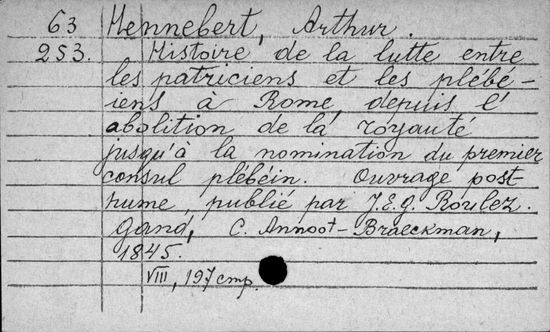 63 Hennebert, Arthur.
253. Histoire de la lutte entre
les patriciens et les plébé-
iens à Rome, depuis l'
abolition de la royauté
jusqu'à la nomination du premier
consul plébéin. Ouvrage post
hume, publié par J.E.G. Roulez.
Gand, C. Annoot-Braeckman,
1845.
VIII, 197 cmp.